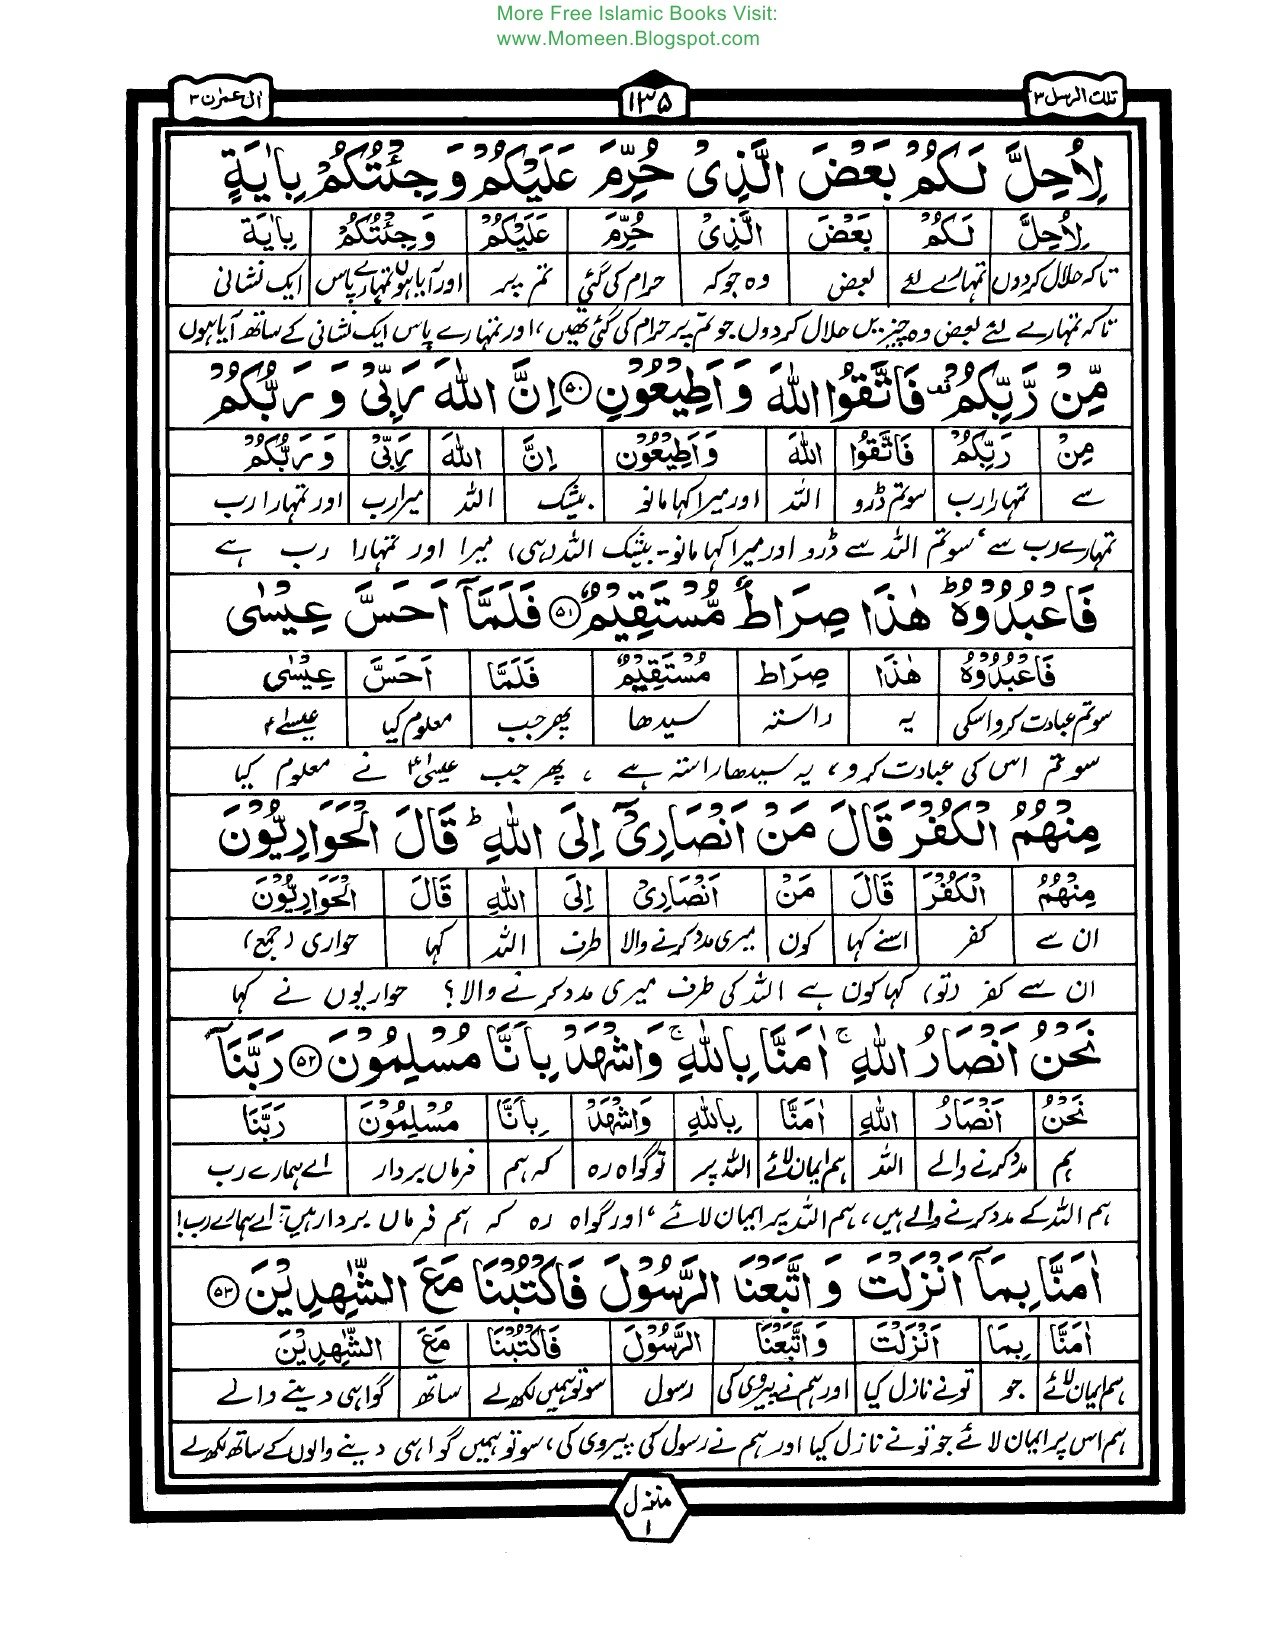 More Free Islamic Books Visit:
www.Momeen.Blogspot.com
تلك الرسل ٣
١٣۵
اٰل عمرٰن ٣
لِاُحِلَّ لَكُمْ بَعْضَ الَّذِیْ حُرِّمَ عَلَیْكُمْ وَ جِئْتُكُمْ بِاٰیَةٍ
لِاُحِلَّ لَكُمْ بَعْضَ الَّذِیْ حُرِّمَ عَلَیْكُمْ وَ جِئْتُكُمْ بِاٰیَة
تاکہ حلال کردوں تمہارے لئے بعض وہ جو کہ حرام کی گئی تم پر اور آیا ہوں تمہارے پاس ایک نشانی
تاکہ تمہارے لئے بعض وہ چیزیں حلال کردوں جو تم پر حرام کی گئی تھیں، اور تمہارے پاس ایک نشانی کے ساتھ آیا ہوں
مِّنْ رَّبِّكُمْ فَاتَّقُوا اللّٰهَ وَ اَطِیْعُوْنِ ۵۰ اِنَّ اللّٰهَ رَبِّیْ وَ رَبُّكُمْ
مِنْ رَبِّكُمْ فَاتَّقُوا اللّٰهَ وَ اَطِیْعُوْن اِنَّ اللّٰهَ رَبِّیْ وَ رَبُّكُمْ
سے تمہارا رب سو تم ڈرو اللہ اور میرا کہا مانو بیشک اللہ میرا رب اور تمہارا رب
تمہارے رب سے، سو تم اللہ سے ڈرو اور میرا کہا مانو۔ بیشک اللہ (ہی) میرا اور تمہارا رب ہے
فَاعْبُدُوْهُ ؕ هٰذَا صِرَاطٌ مُّسْتَقِیْمٌ ۵۱ فَلَمَّاۤ اَحَسَّ عِیْسٰى
فَاعْبُدُوْهُ هٰذَا صِرَاط مُسْتَقِیْمٌ فَلَمَّا اَحَسَّ عِیْسٰى
سو تم عبادت کرو اسکی یہ راستہ سیدھا پھر جب معلوم کیا عیسٰے۴
سو تم اس کی عبادت کرو، یہ سیدھا راستہ ہے، پھر جب عیسٰی۴ نے معلوم کیا
مِنْهُمُ الْكُفْرَ قَالَ مَنْ اَنْصَارِیْۤ اِلَى اللّٰهِ ؕ قَالَ الْحَوَارِیُّوْنَ
مِنْهُمُ الْكُفْرَ قَالَ مَنْ اَنْصَارِیْ اِلَى اللّٰهِ قَالَ الْحَوَارِیُّوْنَ
ان سے کفر اسنے کہا کون میری مدد کرنے والا طرف اللہ کہا حواری (جمع)
ان سے کفر (تو) کہا کون ہے اللہ کی طرف میری مدد کرنے والا؟ حواریوں نے کہا
نَحْنُ اَنْصَارُ اللّٰهِ ۚ اٰمَنَّا بِاللّٰهِ ۚ وَ اشْهَدْ بِاَنَّا مُسْلِمُوْنَ ۵۲ رَبَّنَاۤ
نَحْنُ اَنْصَارُ اللّٰهِ اٰمَنَّا بِاللّٰهِ وَ اشْهَدْ بِاَنَّا مُسْلِمُوْنَ رَبَّنَا
ہم مدد کرنے والے اللہ ہم ایمان لائے اللہ پر تو گواہ رہ کہ ہم فرماں بردار اے ہمارے رب
ہم اللہ کے مدد کرنے والے ہیں، ہم اللہ پر ایمان لائے، اور گواہ رہ کہ ہم فرماں بردار ہیں۔ اے ہمارے رب!
اٰمَنَّا بِمَاۤ اَنْزَلْتَ وَ اتَّبَعْنَا الرَّسُوْلَ فَاكْتُبْنَا مَعَ الشّٰهِدِیْنَ ۵۳
اٰمَنَّا بِمَا اَنْزَلْتَ وَ اتَّبَعْنَا الرَّسُوْلَ فَاكْتُبْنَا مَعَ الشّٰهِدِیْنَ
ہم ایمان لائے جو تونے نازل کیا اور ہم نے پیروی کی رسول سو تو ہمیں لکھ لے ساتھ گواہی دینے والے
ہم اس پر ایمان لائے جو تونے نازل کیا اور ہم نے رسول کی پیروی کی، سو تو ہمیں گواہی دینے والوں کے ساتھ لکھ لے
منزل
١